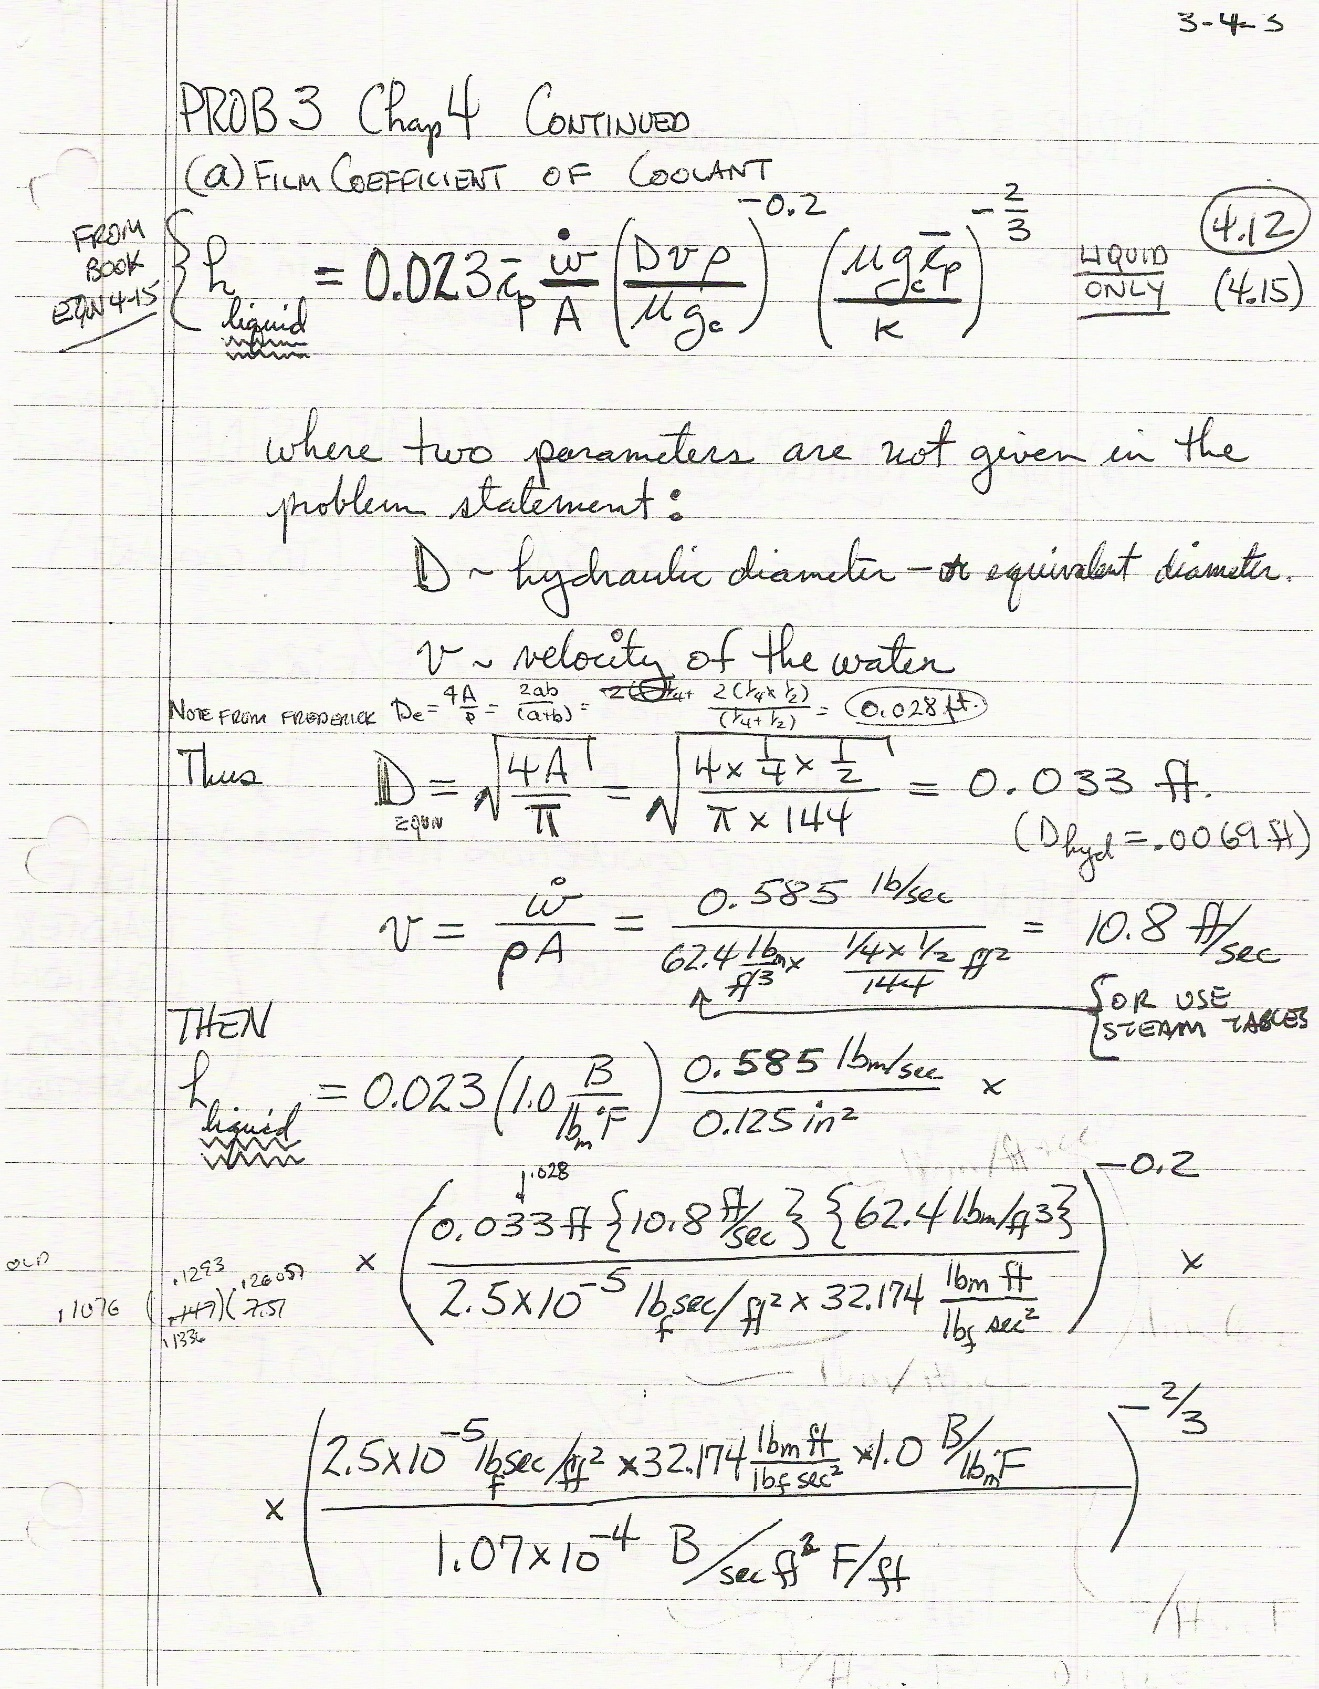 3-4-3
PROB 3 Chap 4 CONTINUED
(a) FILM COEFFICIENT OF COOLANT
FROM BOOK EQN 4-15 { h liquid = 0.023 c̄p ẇ/A (Dvρ/μgc)^-0.2 (μgc c̄p/κ)^-2/3 LIQUID ONLY 4.12 (4.15)
where two parameters are not given in the
problem statement:
D ~ hydraulic diameter - or equivalent diameter.
v ~ velocity of the water
NOTE FROM FREDERICK De = 4A/P = 2ab/(a+b) = 2(1/4 x 1/2)/(1/4 + 1/2) = 0.028 ft.
Thus D EQUIV = √(4A/π) = √(4 x 1/4 x 1/2 / π x 144) = 0.033 ft.
(Dhyd = .0069 ft)
v = ẇ/ρA = 0.585 lb/sec / 62.4 lbm/ft3 x 1/4 x 1/2 / 144 ft2 = 10.8 ft/sec
{ OR USE
STEAM TABLES
THEN
h liquid = 0.023 (1.0 B/lbm°F) 0.585 lbm/sec / 0.125 in2 x
.028
x (0.033 ft {10.8 ft/sec} {62.4 lbm/ft3} / 2.5x10^-5 lbf sec/ft2 x 32.174 lbm ft/lbf sec2)^-0.2 x
OLD
.1293 .26057
.1076 (.147)(.757
.1336
x (2.5x10^-5 lbf sec/ft2 x 32.174 lbm ft/lbf sec2 x 1.0 B/lbm°F / 1.07x10^-4 B/sec ft2 F/ft)^-2/3